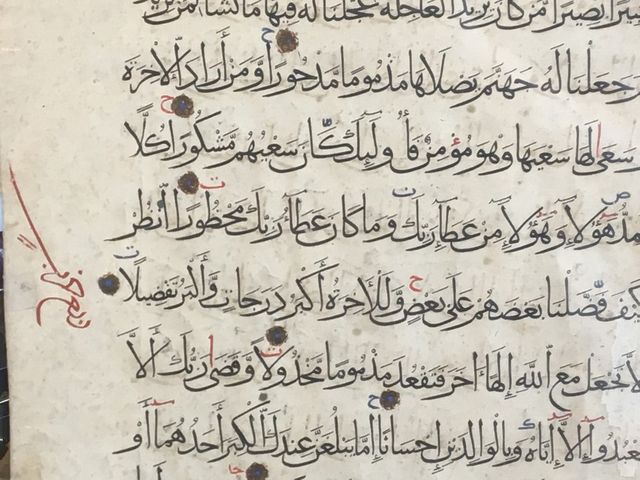 بصيرا من كان يريد العاجلة عجلنا له فيها ما نشاء لمن نريد
جعلنا له جهنم يصلاها مذموما مدحورا ومن أراد الآخرة
وسعى لها سعيها وهو مؤمن فأولئك كان سعيهم مشكورا كلا
نمد هؤلاء وهؤلاء من عطاء ربك وما كان عطاء ربك محظورا انظر
كيف فضلنا بعضهم على بعض وللآخرة أكبر درجات وأكبر تفضيلا
لا تجعل مع الله إلها آخر فتقعد مذموما مخذولا وقضى ربك ألا
تعبدوا إلا إياه وبالوالدين إحسانا إما يبلغن عندك الكبر أحدهما أو